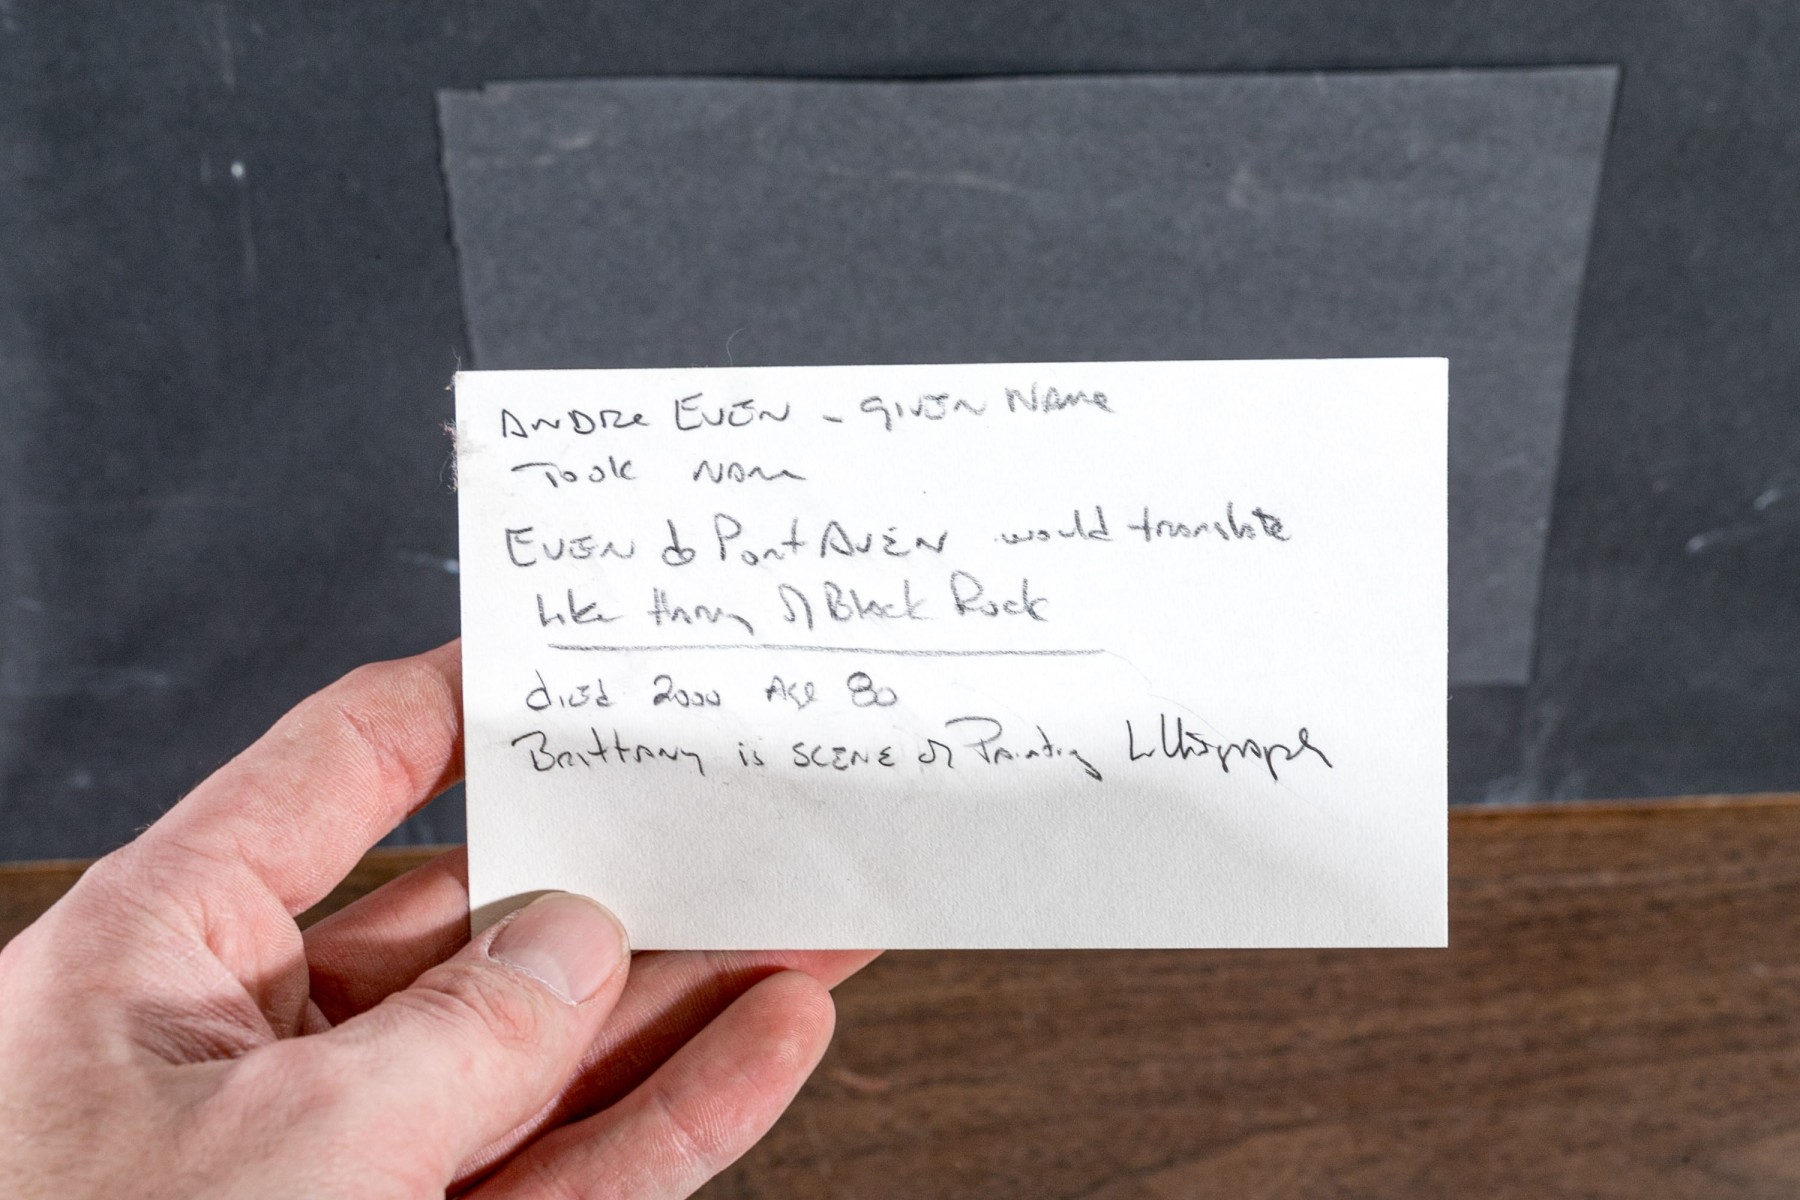 ANDRE EVEN - GIVEN NAME
Took NAME
EVEN de Pont AVEN would translate
Like Harry of Black Rock
died 2000 Age 80
Brittany is SCENE of Painting Lithograph